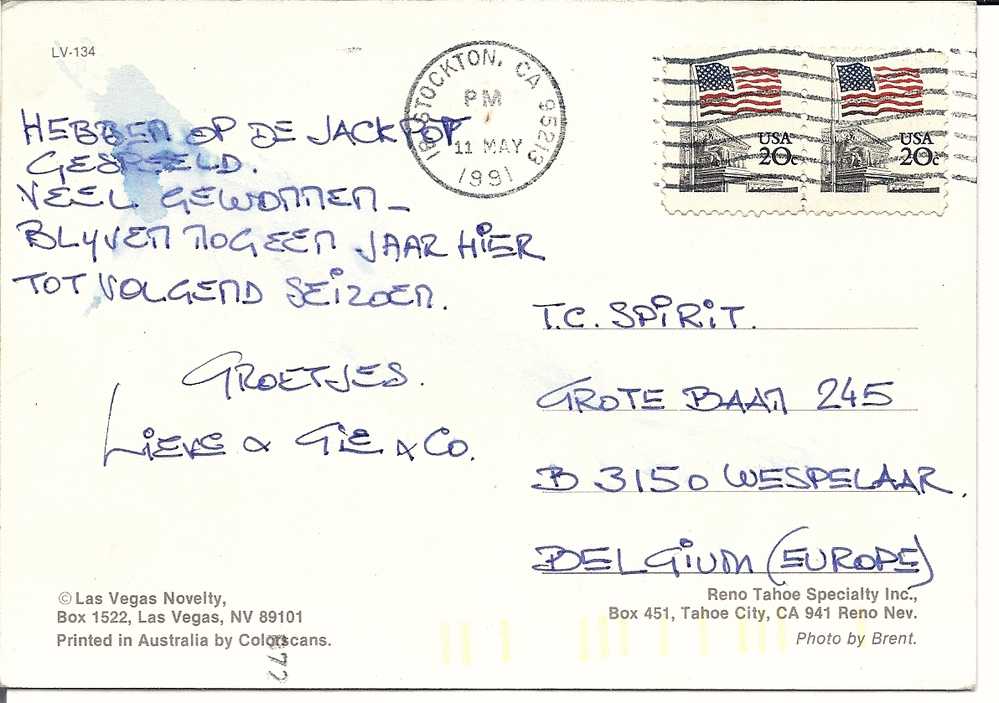 LV-134
STOCKTON, CA 95213
PM
11 MAY
1991
USA
20c
USA
20c
HEBBEN OP DE JACKPOT
GESPEELD.
VEEL GEWONNEN _
BLYVEN NOG EEN JAAR HIER
TOT VOLGEND SEIZOEN.
GROETJES.
LIEVE & GIE & CO.
T.C. SPIRIT.
GROTE BAAN 245
B 3150 WESPELAAR.
BELGIUM (EUROPE)
© Las Vegas Novelty,
Box 1522, Las Vegas, NV 89101
Printed in Australia by Colorscans.
Reno Tahoe Specialty Inc.,
Box 451, Tahoe City, CA 941 Reno Nev.
Photo by Brent.